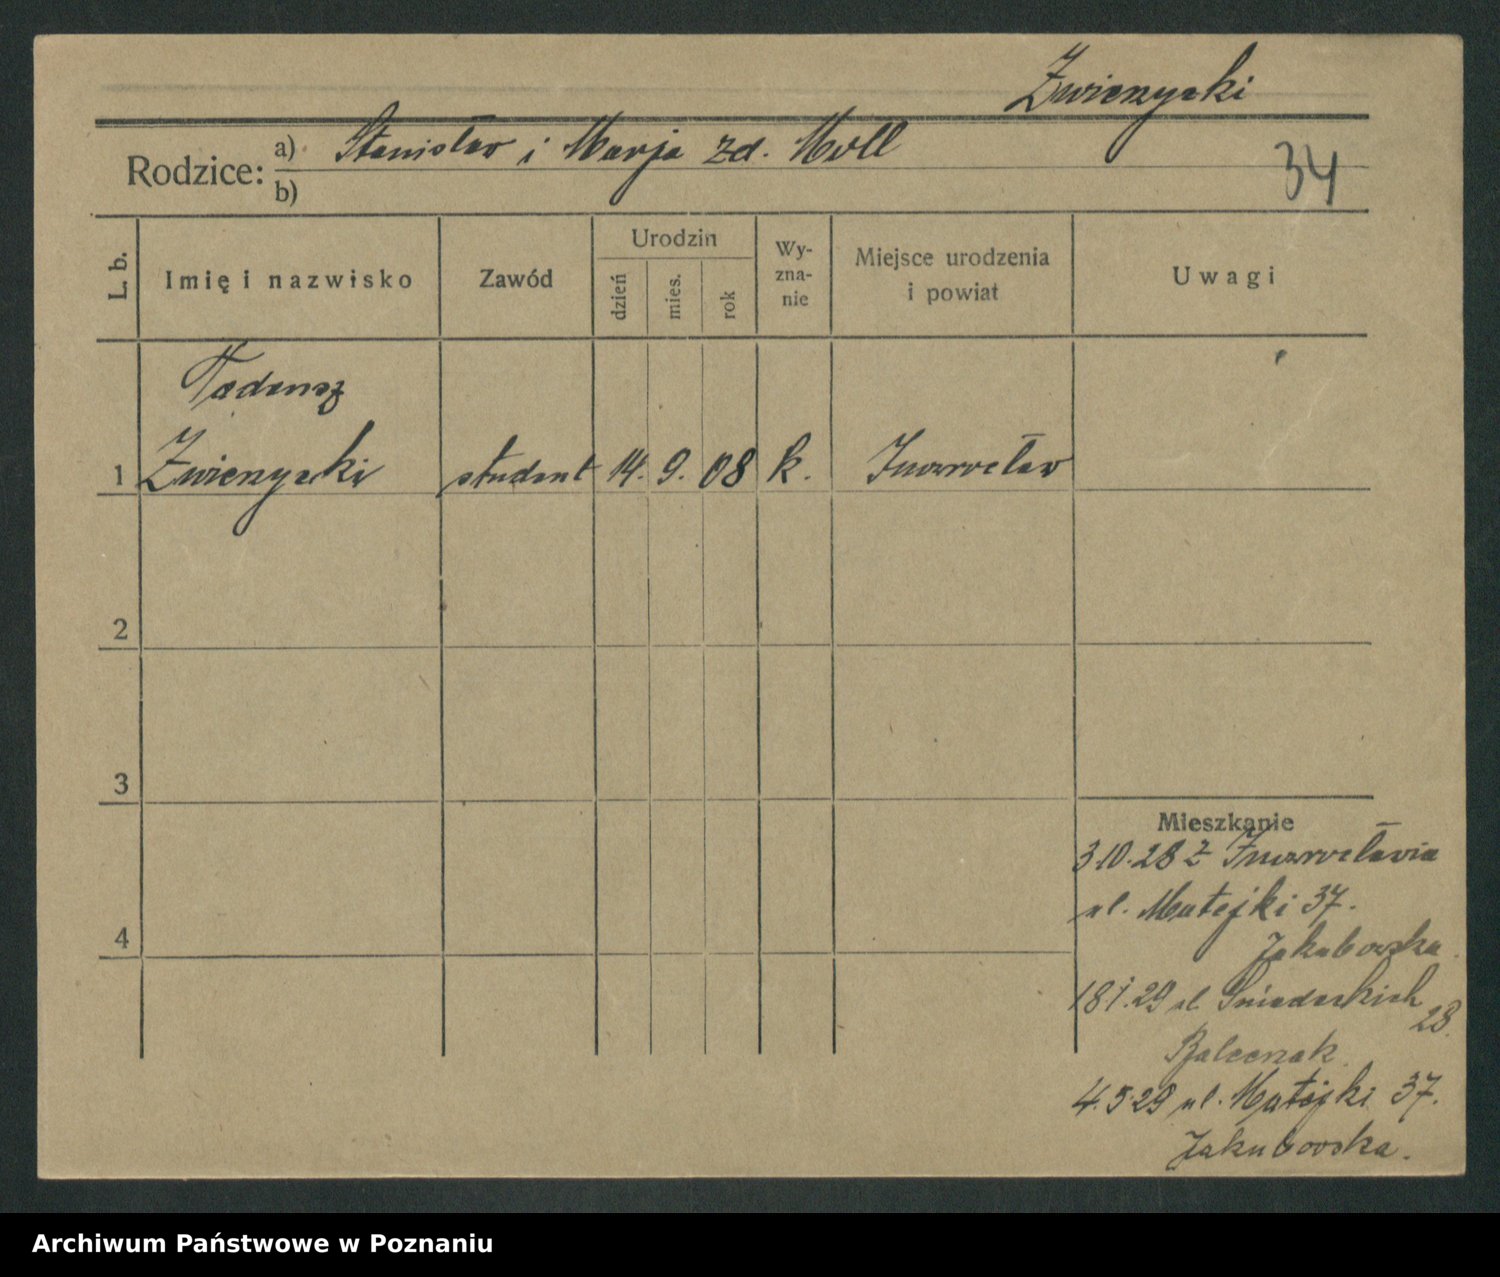 Zwierzycki
Rodzice: a) Stanisław i Marja zd. Moll
b)
34
L. b.
Imię i nazwisko
Zawód
Urodzin
dzień
mies.
rok
Wy-
zna-
nie
Miejsce urodzenia
i powiat
Uwagi
Tadeusz
1 Zwierzycki student 14. 9. 08 k. Inowrocław
2
3
4
Mieszkanie
3.10.28 z Inowrocławia
ul. Matejki 37.
Jakubowska.
18.1.29 ul. Śniadeckich
28.
4.5.29 ul. Matejki 37.
Jakubowska.
Archiwum Państwowe w Poznaniu